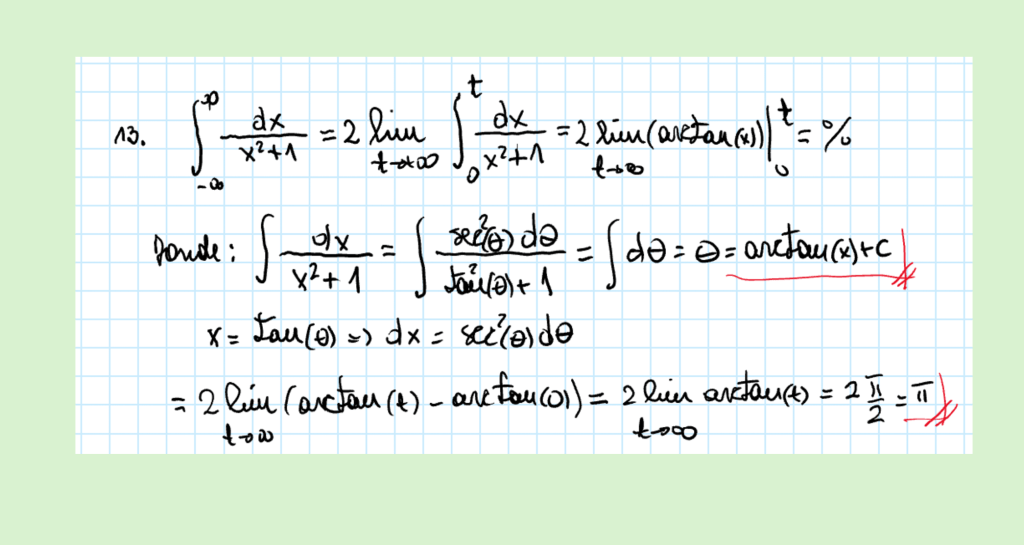 13. ∫_{-∞}^{∞} dx/(x²+1) = 2 lim_{t→+∞} ∫_0^t dx/(x²+1) = 2 lim_{t→∞} (arctan(x)) |_0^t = %
Donde: ∫ dx/(x²+1) = ∫ sec²(θ) dθ/(tan²(θ)+1) = ∫ dθ = θ = arctan(x)+C
x = tan(θ) => dx = sec²(θ) dθ
= 2 lim_{t→∞} (arctan(t) - arctan(0)) = 2 lim_{t→∞} arctan(t) = 2 π/2 = π